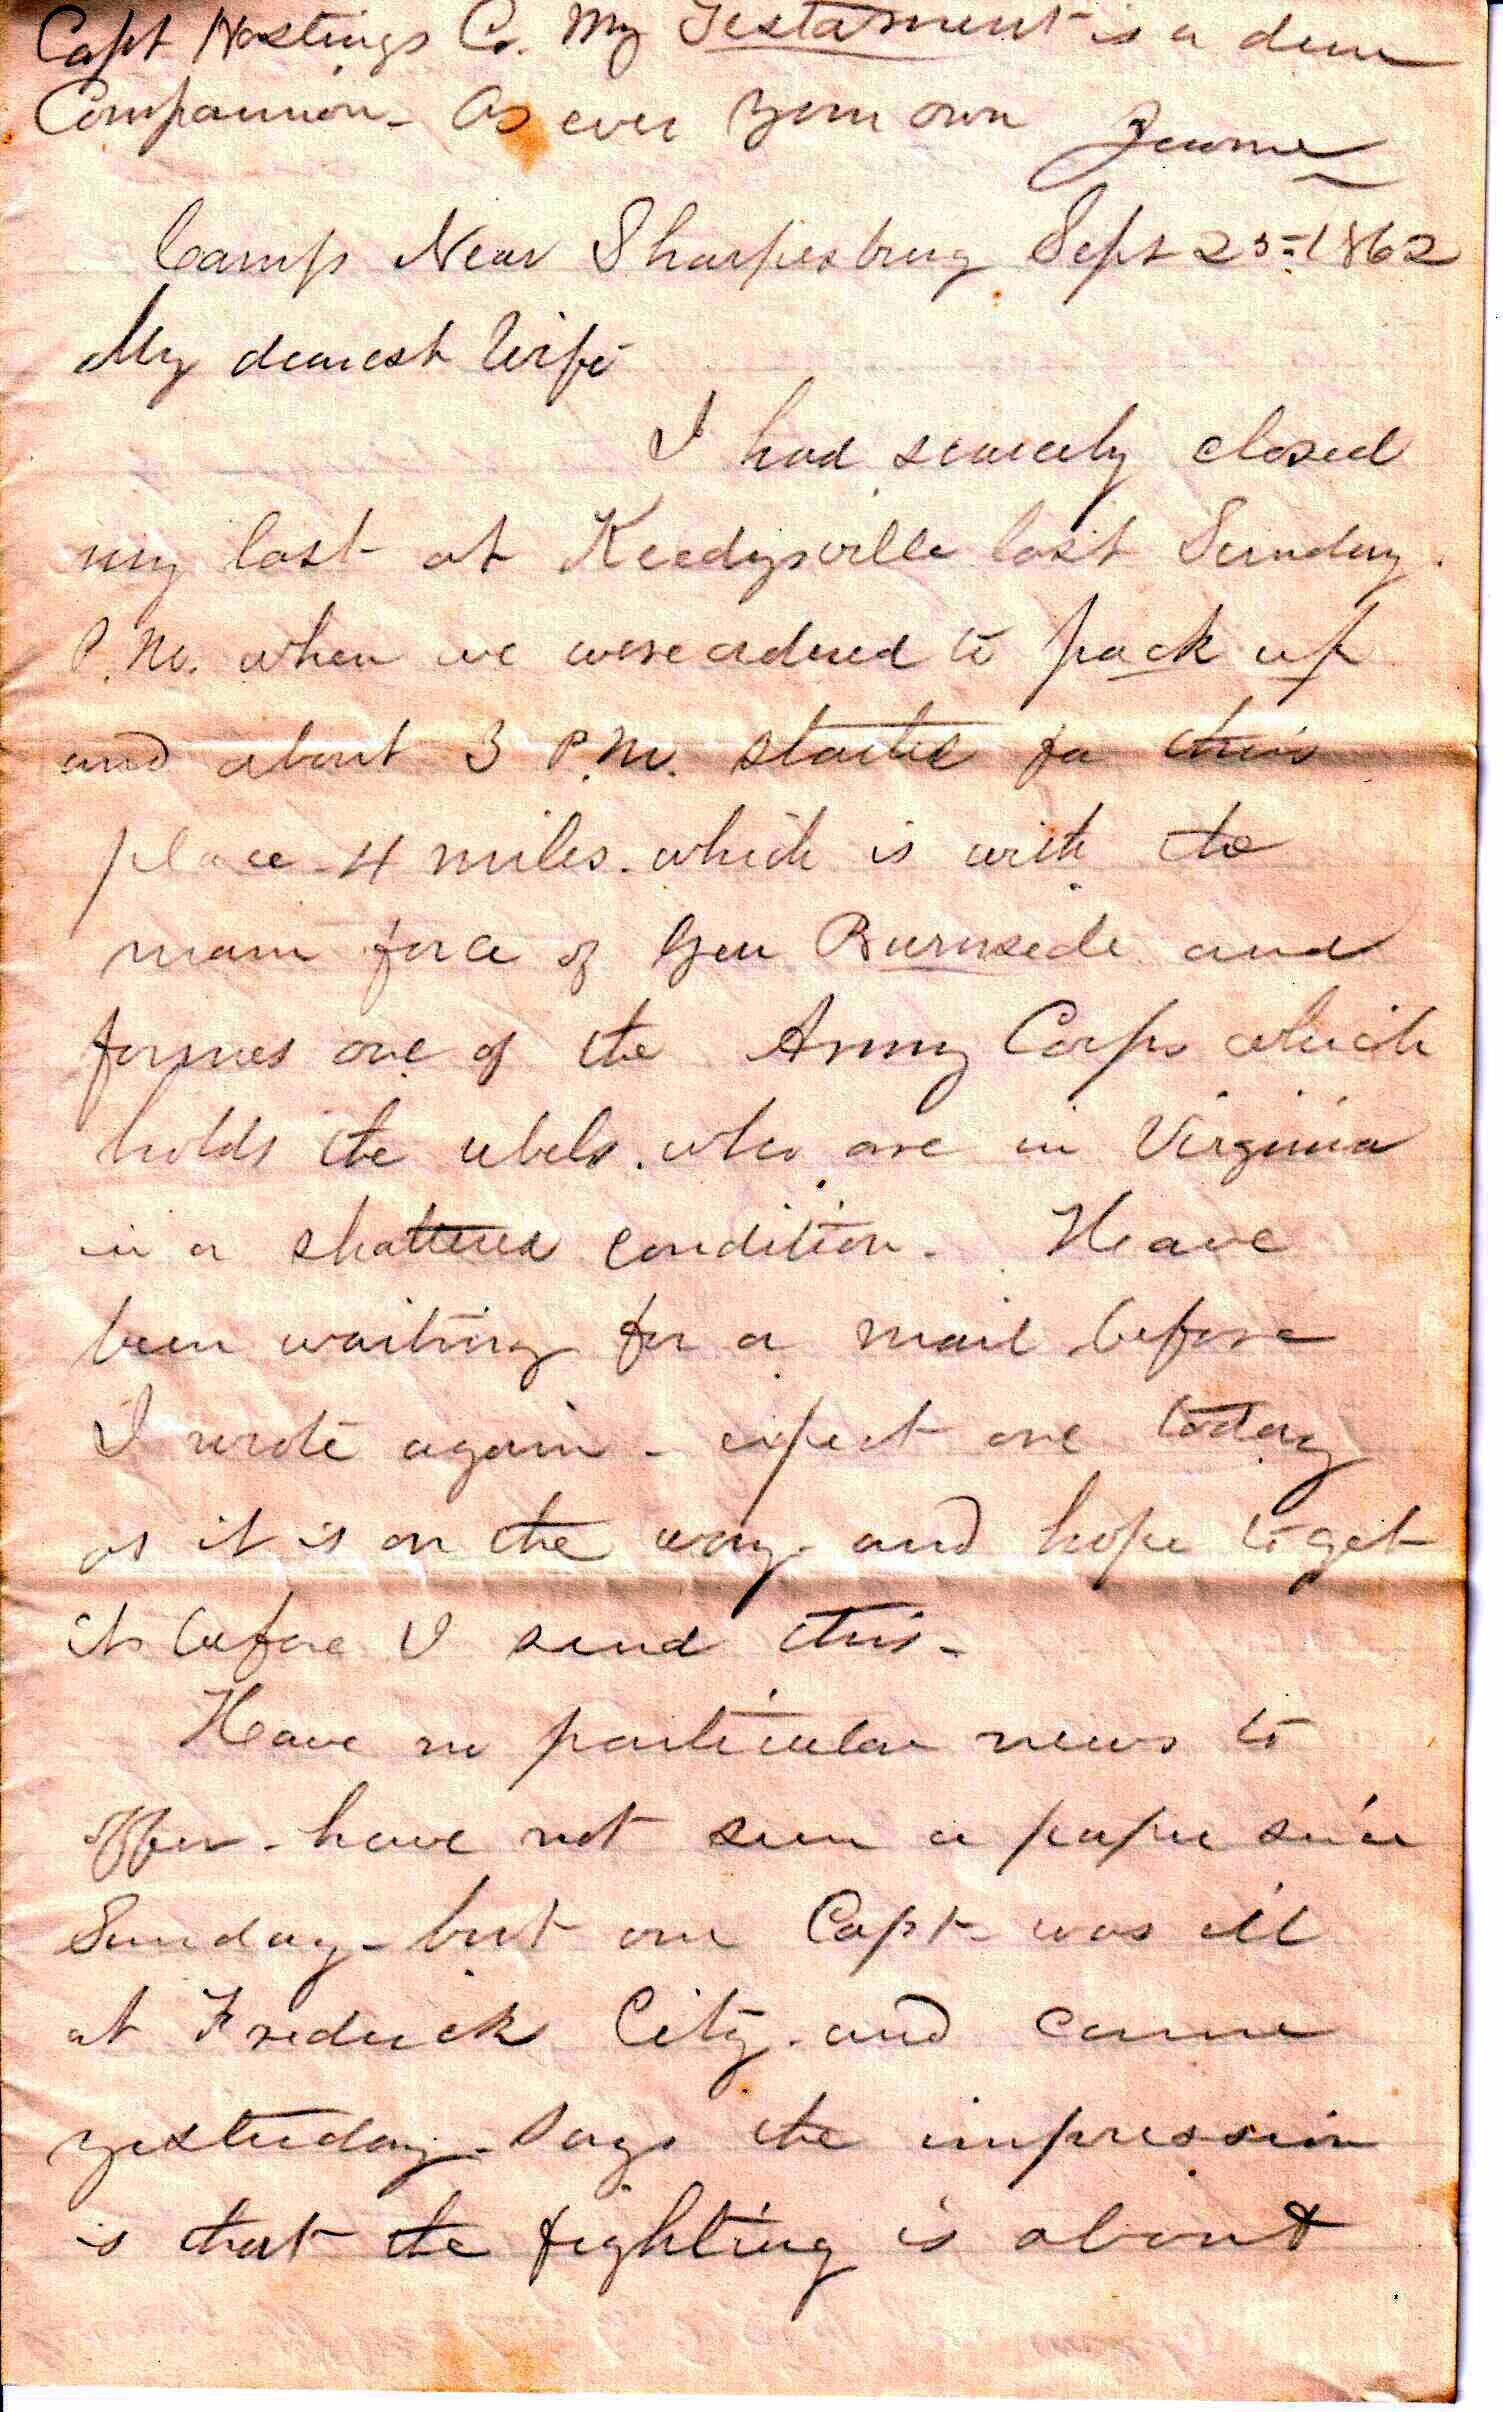 Capt Hastings Co. My Testament is a dear
Companion - As ever your own Jerome
Camp Near Sharpesburg Sept 25 = 1862
My dearest Wife
I had scarcely closed
my last at Keedysville last Sunday.
P.M. when we were ordered to pack up
and about 3 P.M. started for this
place 4 miles. which is with the
main force of Gen Burnside and
formes one of the Army Corps which
holds the rebels. who are in Virginia
in a shattered condition. Have
been waiting for a mail before
I wrote again - expect one today
as it is on the way. and hope to get
it before I send this -
Have no particular news to
offer - have not seen a paper since
Sunday - but our Capt - was ill
at Frederick City. and came
yesterday - Says the impression
is that the fighting is about